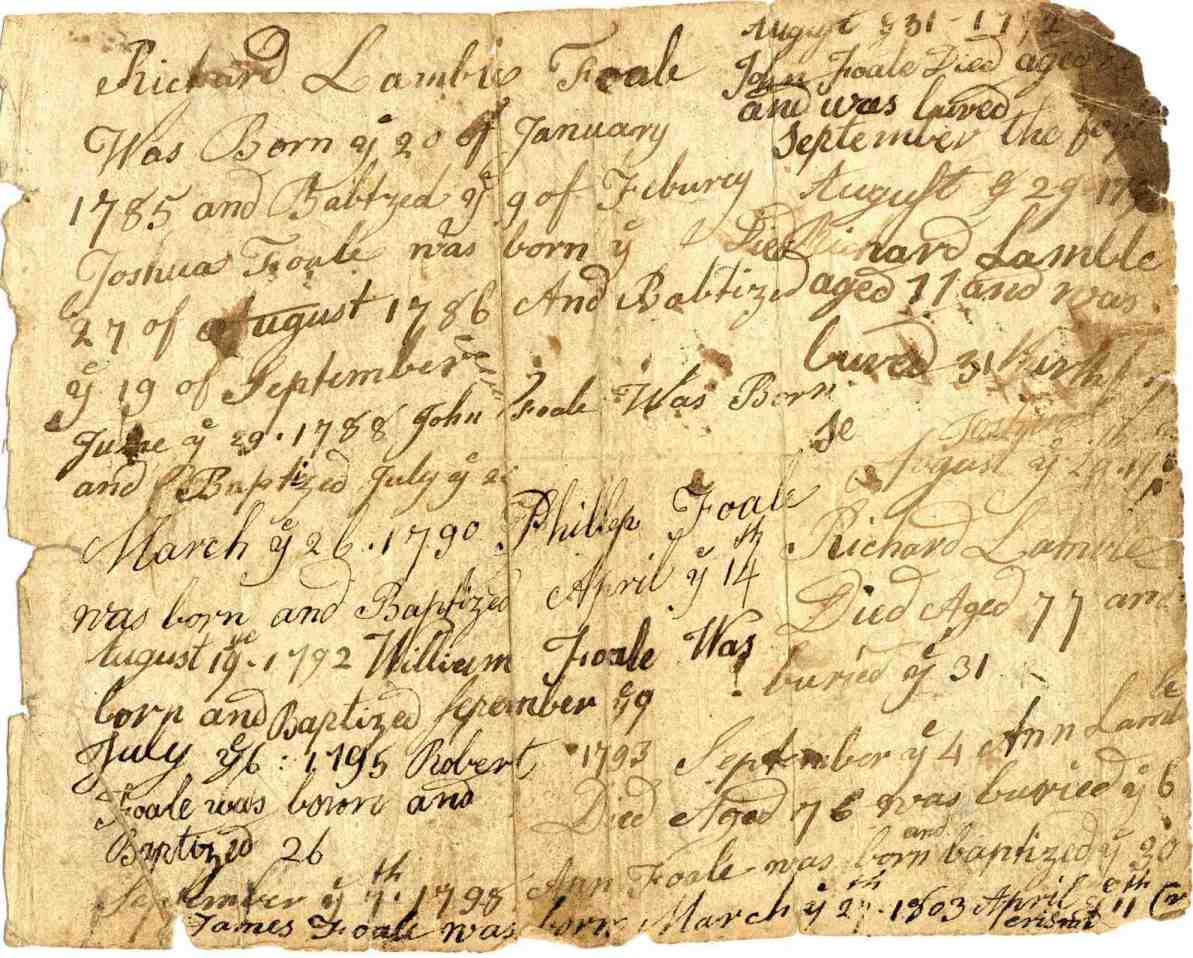 Richard Lambie Foale
Was Born ye 20 of January
1785 and Babtzed ye 9 of Feburey
Joshua Foale was born ye
27 of August 1786 And Babtized
ye 19 of September
June ye 29 . 1788 John Foale Was Born
and Baptized July ye
March ye 26 . 1790 Phillip Foale
was born and Baptized April ye 14th
August 19 . 1792 William Foale Was
born and Baptized Sepember ye 9
July ye 6 : 1795 Robert
Foale was boron and
Baptized 26
September ye 7th . 1798 Ann Foale was born and baptized ye 30
James Foale was born March ye 27th . 1803 April ye 11th
crisnt
August ye 31 - 17
John Foale Died aged
and was bured
September the
August ye 29 17
Died Richard Lamble
aged 77 and was
bured 31
se
August ye 29 . 17
Richard Lamble
Died Aged 77 and
buried ye 31
1793 September ye 4 Ann Lamble
Died Aged 76 was buried ye 6